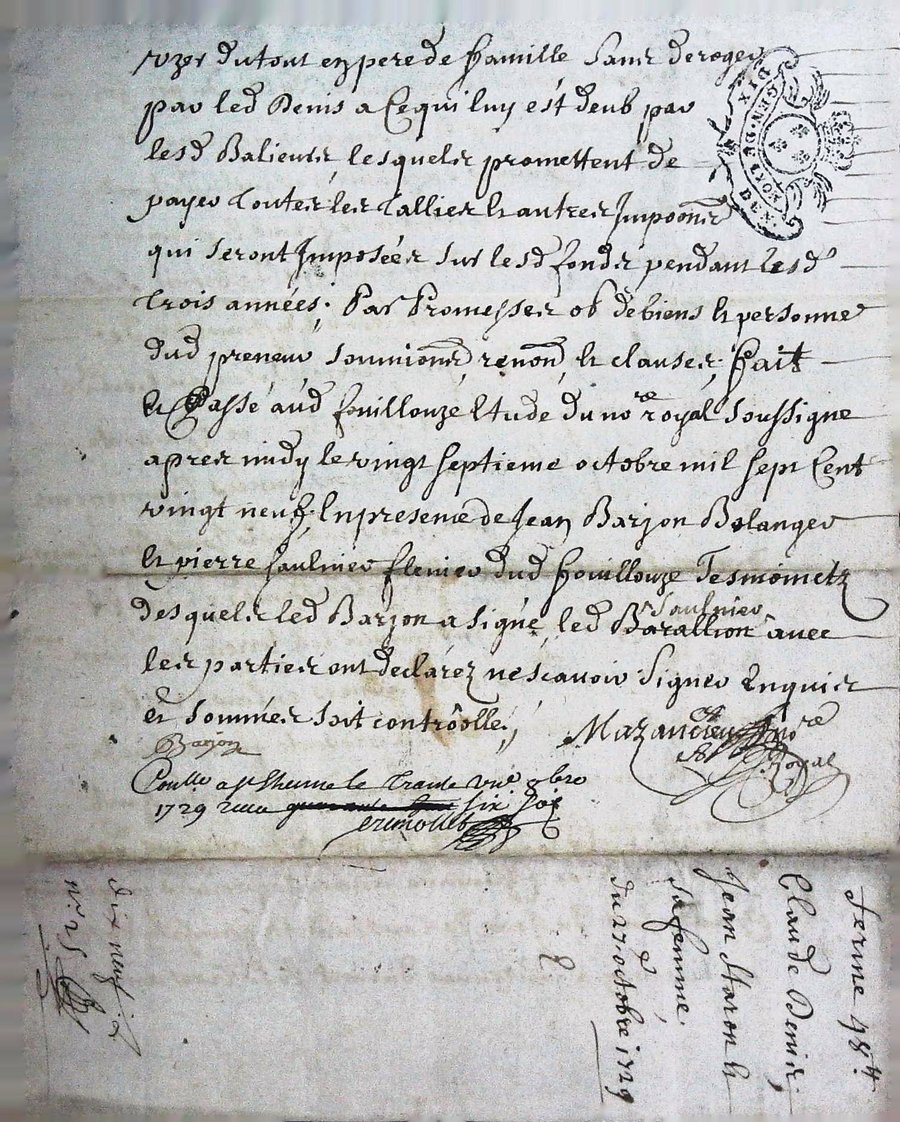 uzer du tout en pere de famille sans deroger
par led Denis a Ce qui luy est deub par
lesd Balieurs, lesquels promettent de
payer Toutes les Tallies et autres Impoons
qui seront Imposées sur lesd fonds pendant lesd
Trois années. Par Promesses ob de biens et personne
dud preneur soumions renon et clauses, fait
et Passé aud fouillouze Etude du nore royal soussigne
apres midy le vingt septieme octobre mil sept Cent
vingt neuf, En presence de Jean Barjon Bolanger
et pierre saulnier dud fouillouze Tesmoingtz
desquels led Barjon a signé, led Barallion saulnier avec
les parties ont declarez ne scavoir signer Enquis
et sommes soit controolle,
Mazancieu nore
Royal
Barjon
Conlle a st Etienne le Trante une 8bre
1729 receu six sols
dix neuf
no 25
ferme 48tt
Claude Denis
Jean Staron et
sa femme
du 27 octobre 1729
DIX
DEN